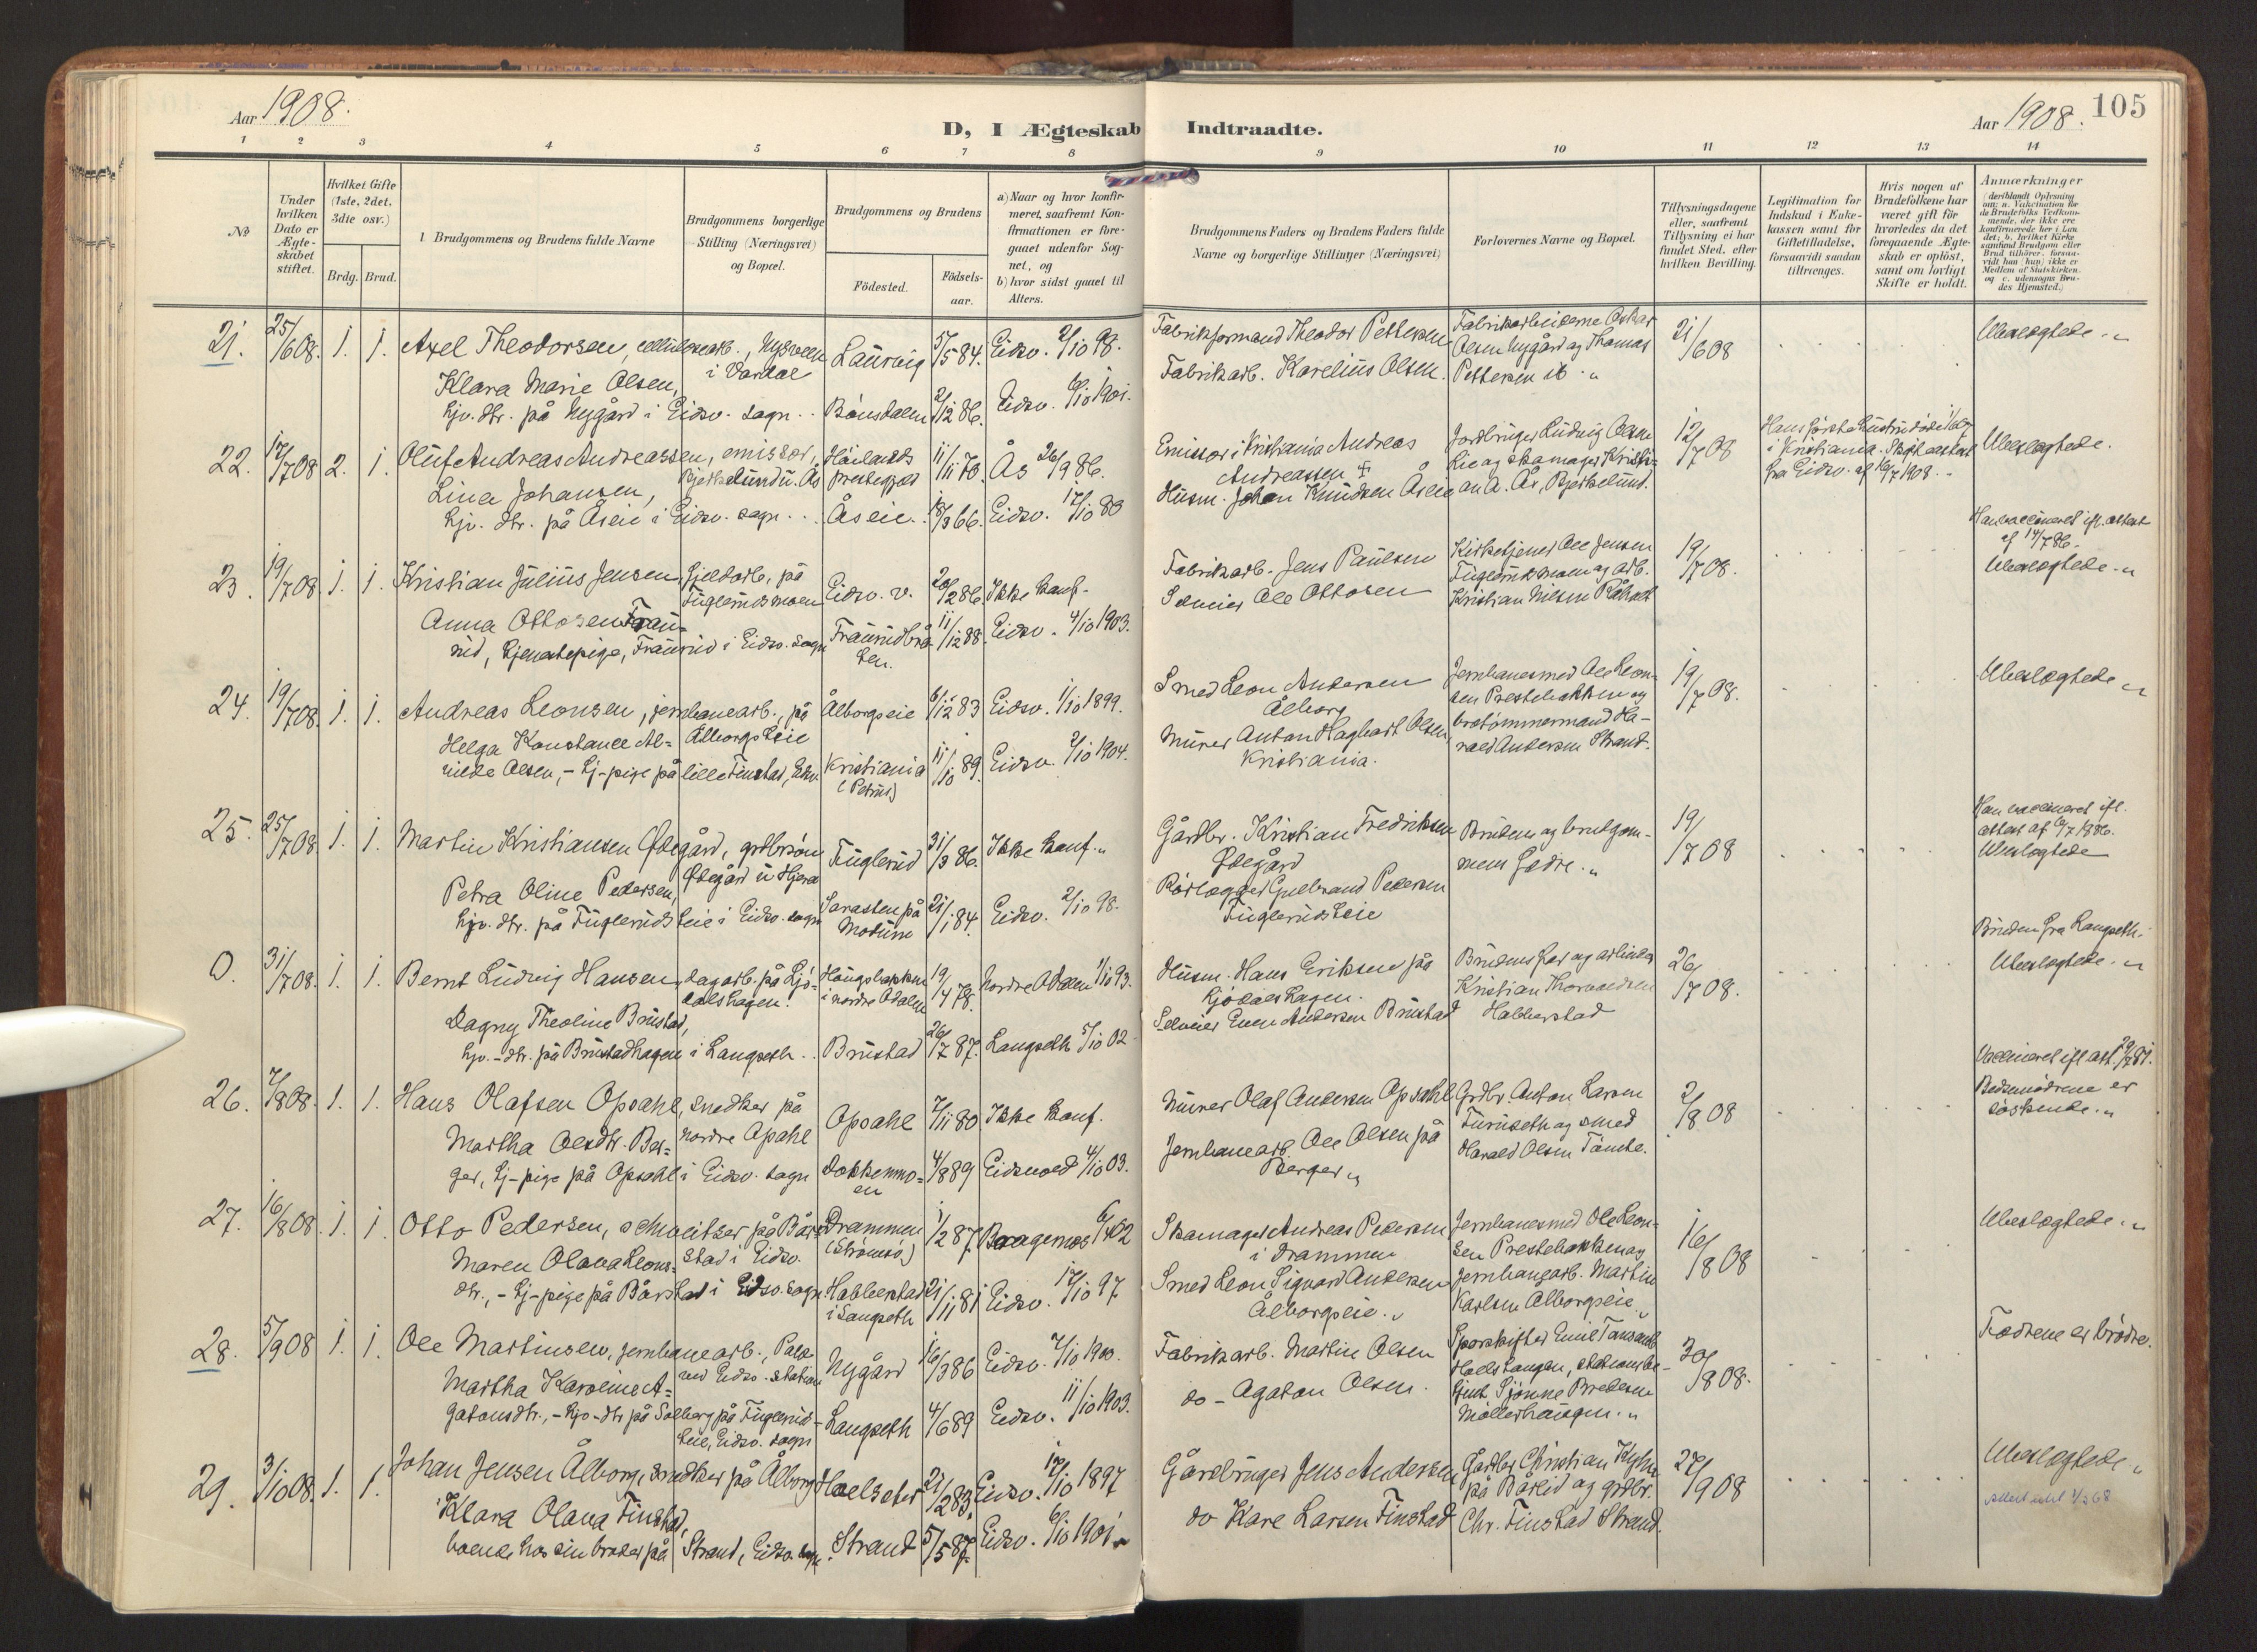 Aar 1908.
D, I Ægteskab Indtraadte.
Aar 1908. 105
1 2 3 4 5 6 7 8 9 10 11 12 13 14
No
Under hvilken Dato er Ægte-skabet stiftet.
Hvilket Gifte (1ste, 2det, 3die osv.)
Brdg. Brud.
Brudgommens og Brudens fulde Navne
Brudgommens borgerlige Stilling (Næringsvei) og Bopæl.
Brudgommens og Brudens
Födested.
Födsels-aar.
a) Naar og hvor konfir-meret, saafremt Kon-firmationen er fore-gaaet udenfor Sog-net, og
b) hvor sidst gaaet til Alters.
Brudgommens Faders og Brudens Faders fulde Navne og borgerlige Stillinger (Næringsvei)
Forlovernes Navne og Bopæl.
Tillysningsdagene eller, saafremt Tillysning ei har fundet Sted, efter hvilken Bevilling.
Legitimation for Indskud i Enke-kassen samt for Giftetilladelse, forsaavidt saadan tiltrænges.
Hvis nogen af Brudefolkene har været gift för hvorledes da det foregaaende Ægte-skab er oplöst, samt om lovligt Skifte er holdt.
Anmærkninger
21. 25/6 08. 1. 1. Axel Theodorsen, cellulosearb., Nysveen i Vardal Laurvig 5/5 84. Eidsv. 2/10 98. Fabrikformand Theodor Pettersen Fabrikarbeiderne Oskar Olsen Nygård og Thomas Pettersen ib. 21/6 08 Ubeslægtede
Klara Marie Olsen, hjv. dtr. på Nygård i Eidsv. sogn Bönsdalen 2/12 86. Eidsv. 6/10 1901. Fabrikarb. Karelius Olsen.
22. 12/7 08 2. 1. Oluf Andreas Andreassen, emissær, Bjerkelund u. Ås Höilands prestegjeld 11/11 70. Ås 26/9 86. Emissær i Kristiania Andreas Andreassen Jordbruger Ludvig Olsen Lie og skomager Kristian A. Ås, Bjerkelund. 12/7 08 Ubeslægtede.
Lina Johansen, hjv. dtr. på Åseie i Eidsv. sogn Åseie. 15/3 66. Eidsv. 17/10 80 Husm. Johan Knudsen Åseie
Hans förste hustru döde i Kristiania. Skifteattest fra Eidsv. af 16/7 1908.
23. 19/7 08 1. 1. Kristian Julius Jensen, fjeldarb. på Fuglerudsmoen Eidsv. v. 20/2 86. Ikke konf. Fabrikarb. Jens Paulsen Kirketjener Ole Jensen Fuglerudsmoen og arb. Kristian Nilsen Råholt 19/7 08.
Han vaccineret ifl. attest af 14/7 86. Ubeslægtede
Anna Ottosen Fraurud, tjenestepige, Fraurud i Eidsv. sogn Fraurudbråten. 11/12 88. Eidsv. 4/10 1903. Selveier Ole Ottosen
24. 19/7 08 1. 1. Andreas Leonsen, jernbanearb., på Ålborgseie Ålborgseie 6/12 83 Eidsv. 1/10 1899. Smed Leon Andersen Ålborg Jernbanesmed Ole Leonsen Prestebakken og brotömmermand Harald Andersen Strand. 19/7 08. Ubeslægtede
Helga Konstance Alvilde Olsen, - tj-pige på lille Finstad, Eidsv. Kristiania (Petrus) 11/10 89. Eidsv. 2/10 1904. Murer Anton Hagbart Olsen, Kristiania.
25. 25/7 08 1. 1. Martin Kristiansen Ödegård, grdbrsön Ödegård u Hjera Fuglerud 31/3 86. Ikke konf. Gårdbr. Kristian Fredriksen Ödegård Brudens og brudgommens fædre. 19/7 08
Han vaccineret ifl. attest af 6/7 1886. Ubeslægtede
Petra Oline Pedersen, hjv. dtr. på Fuglerudseie i Eidsv. sogn Sarasten på Modum 21/1 84. Eidsv. 2/10 98. Rörlægger Gulbrand Pedersen Fuglerudseie
0. 31/7 08. 1. 1. Bernt Ludvig Hansen, dagarb. på Kjödalshagen. Haugsbakken i nordre Odalen 19/4 78. Nordre Odalen 1/10 93. Husm. Hans Eriksen på Kjödalshagen. Brudens far og arbeider Kristian Thorvaldsen Habberstad 26/7 08.
Bruden fra Langseth. Ubeslægtede.
Dagny Theoline Brustad, hjv.-dtr. på Brustadhagen i Langseth Brustad 26/7 87. Langseth 5/10 02 Selveier Even Andersen Brustad
26. 7/8 08. 1. 1. Hans Olafsen Opsahl, snedker på nordre Opsahl Opsahl 7/11 80 Ikke konf. Murer Olaf Andersen Opsahl Grdbr. Anton Larsen Furuseth og smed Harald Olsen Tömte. 2/8 08
Vaccineret ifl. att. 29/7 81. Bedstemödrene er söskende.
Martha Olsdtr. Berger, tj-pige på Opsahl i Eidsv. sogn Dokkenmoen 4/8 89 Eidsvold 4/10 03. Jernbanearb. Ole Olsen på Berger
27. 16/8 08. 1. 1 Otto Pedersen, schweitser på Bårstad i Eidsv. Drammen (Strömsö) 1/2 87. Bragernes 6/4 02 Skomager Andreas Pedersen i Drammen Jernbanesmed Ole Leonsen Prestebakken og jernbanearb. Martin Karlsen Ålborgseie. 16/8 08 Ubeslægtede.
Maren Olava Leonsdtr., - tj-pige på Bårstad i Eidsv. sogn Habberstad i Langseth 21/11 81 Eidsv. 17/10 97 Smed Leon Sigvard Andersen Ålborgseie.
28. 5/9 08 1. 1. Ole Martinsen, jernbanearb., ved Eidsv. station Nygård 16/3 86 Eidsv. 7/10 1900. Fabrikarb. Martin Olsen Sporskifter Emil 30/8 08. Fædrene er brödre.
Martha Karoline Agatonsdtr., - hjv-dtr på Solberg på Fuglerudseie, Eidsv. sogn Langseth 4/6 89 Eidsv. 11/10 1903. do - Agaton Olsen. Möllerhaugen.
29. 3/10 08. 1. 1. Johan Jensen Ålborg, snedker på Ålborg Hoelseter 21/2 83. Eidsv. 17/10 1897 Gårdbruger Jens Andersen Gårdbr. Christian Kyhn på Bårlid og grdbr. Chr. Finstad Strand. 27/9 08 Ubeslægtede
Klara Olava Finstad, boende hos sin broder på Strand, Eidsv. sogn. Strand 5/5 87. Eidsv. 6/10 1901 do Kare Larsen Finstad